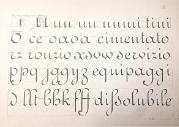 un un unumi tini
O ce oaoa cimentato
rz ronzio xsow servizio
ppq jggyz equipaggi
d llt bbk fff dissolubile